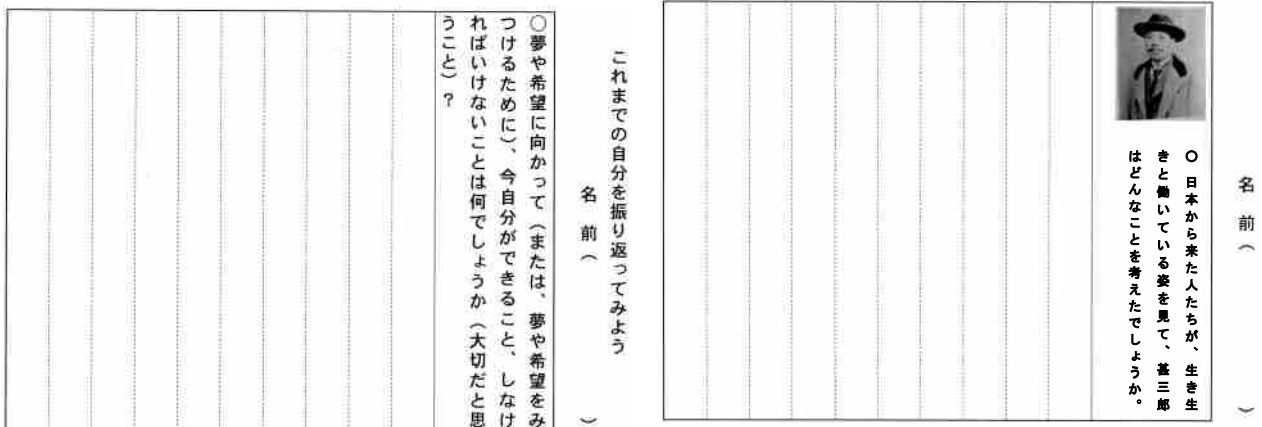 名　前（　　　　　　）
○　日本から来た人たちが、生き生
きと働いている姿を見て、甚三郎
はどんなことを考えたでしょうか。
これまでの自分を振り返ってみよう
名　前（　　　　　　）
○夢や希望に向かって（または、夢や希望をみ
つけるために）、今自分ができること、しなけ
ればいけないことは何でしょうか（大切だと思
うこと）？